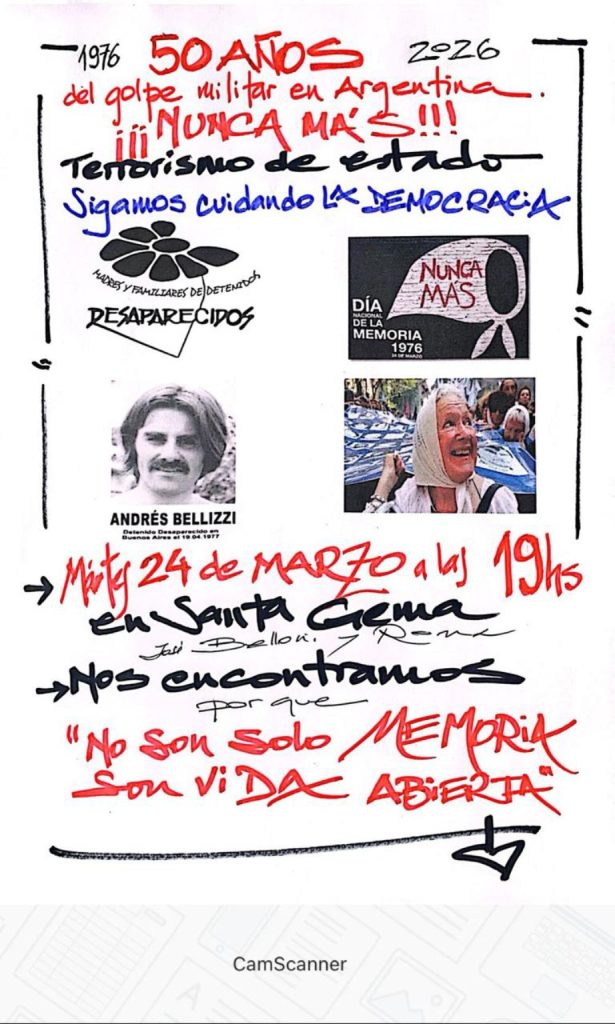 1976 50 AÑOS 2026
del golpe militar en Argentina.
¡¡¡NUNCA MÁS!!!
Terrorismo de estado
Sigamos cuidando LA DEMOCRACIA
MADRES Y FAMILIARES DE DETENIDOS
DESAPARECIDOS
NUNCA
MÁS
DÍA
NACIONAL
DE LA
MEMORIA
1976
24 DE MARZO
ANDRÉS BELLIZZI
Detenido Desaparecido en
Buenos Aires el 19.04.1977
→ Martes 24 de MARZO a las 19hs
en Santa Gema
José Belloni y Roma
→ Nos encontramos
por que
"No son solo MEMORIA
son VIDA ABIERTA"
CamScanner